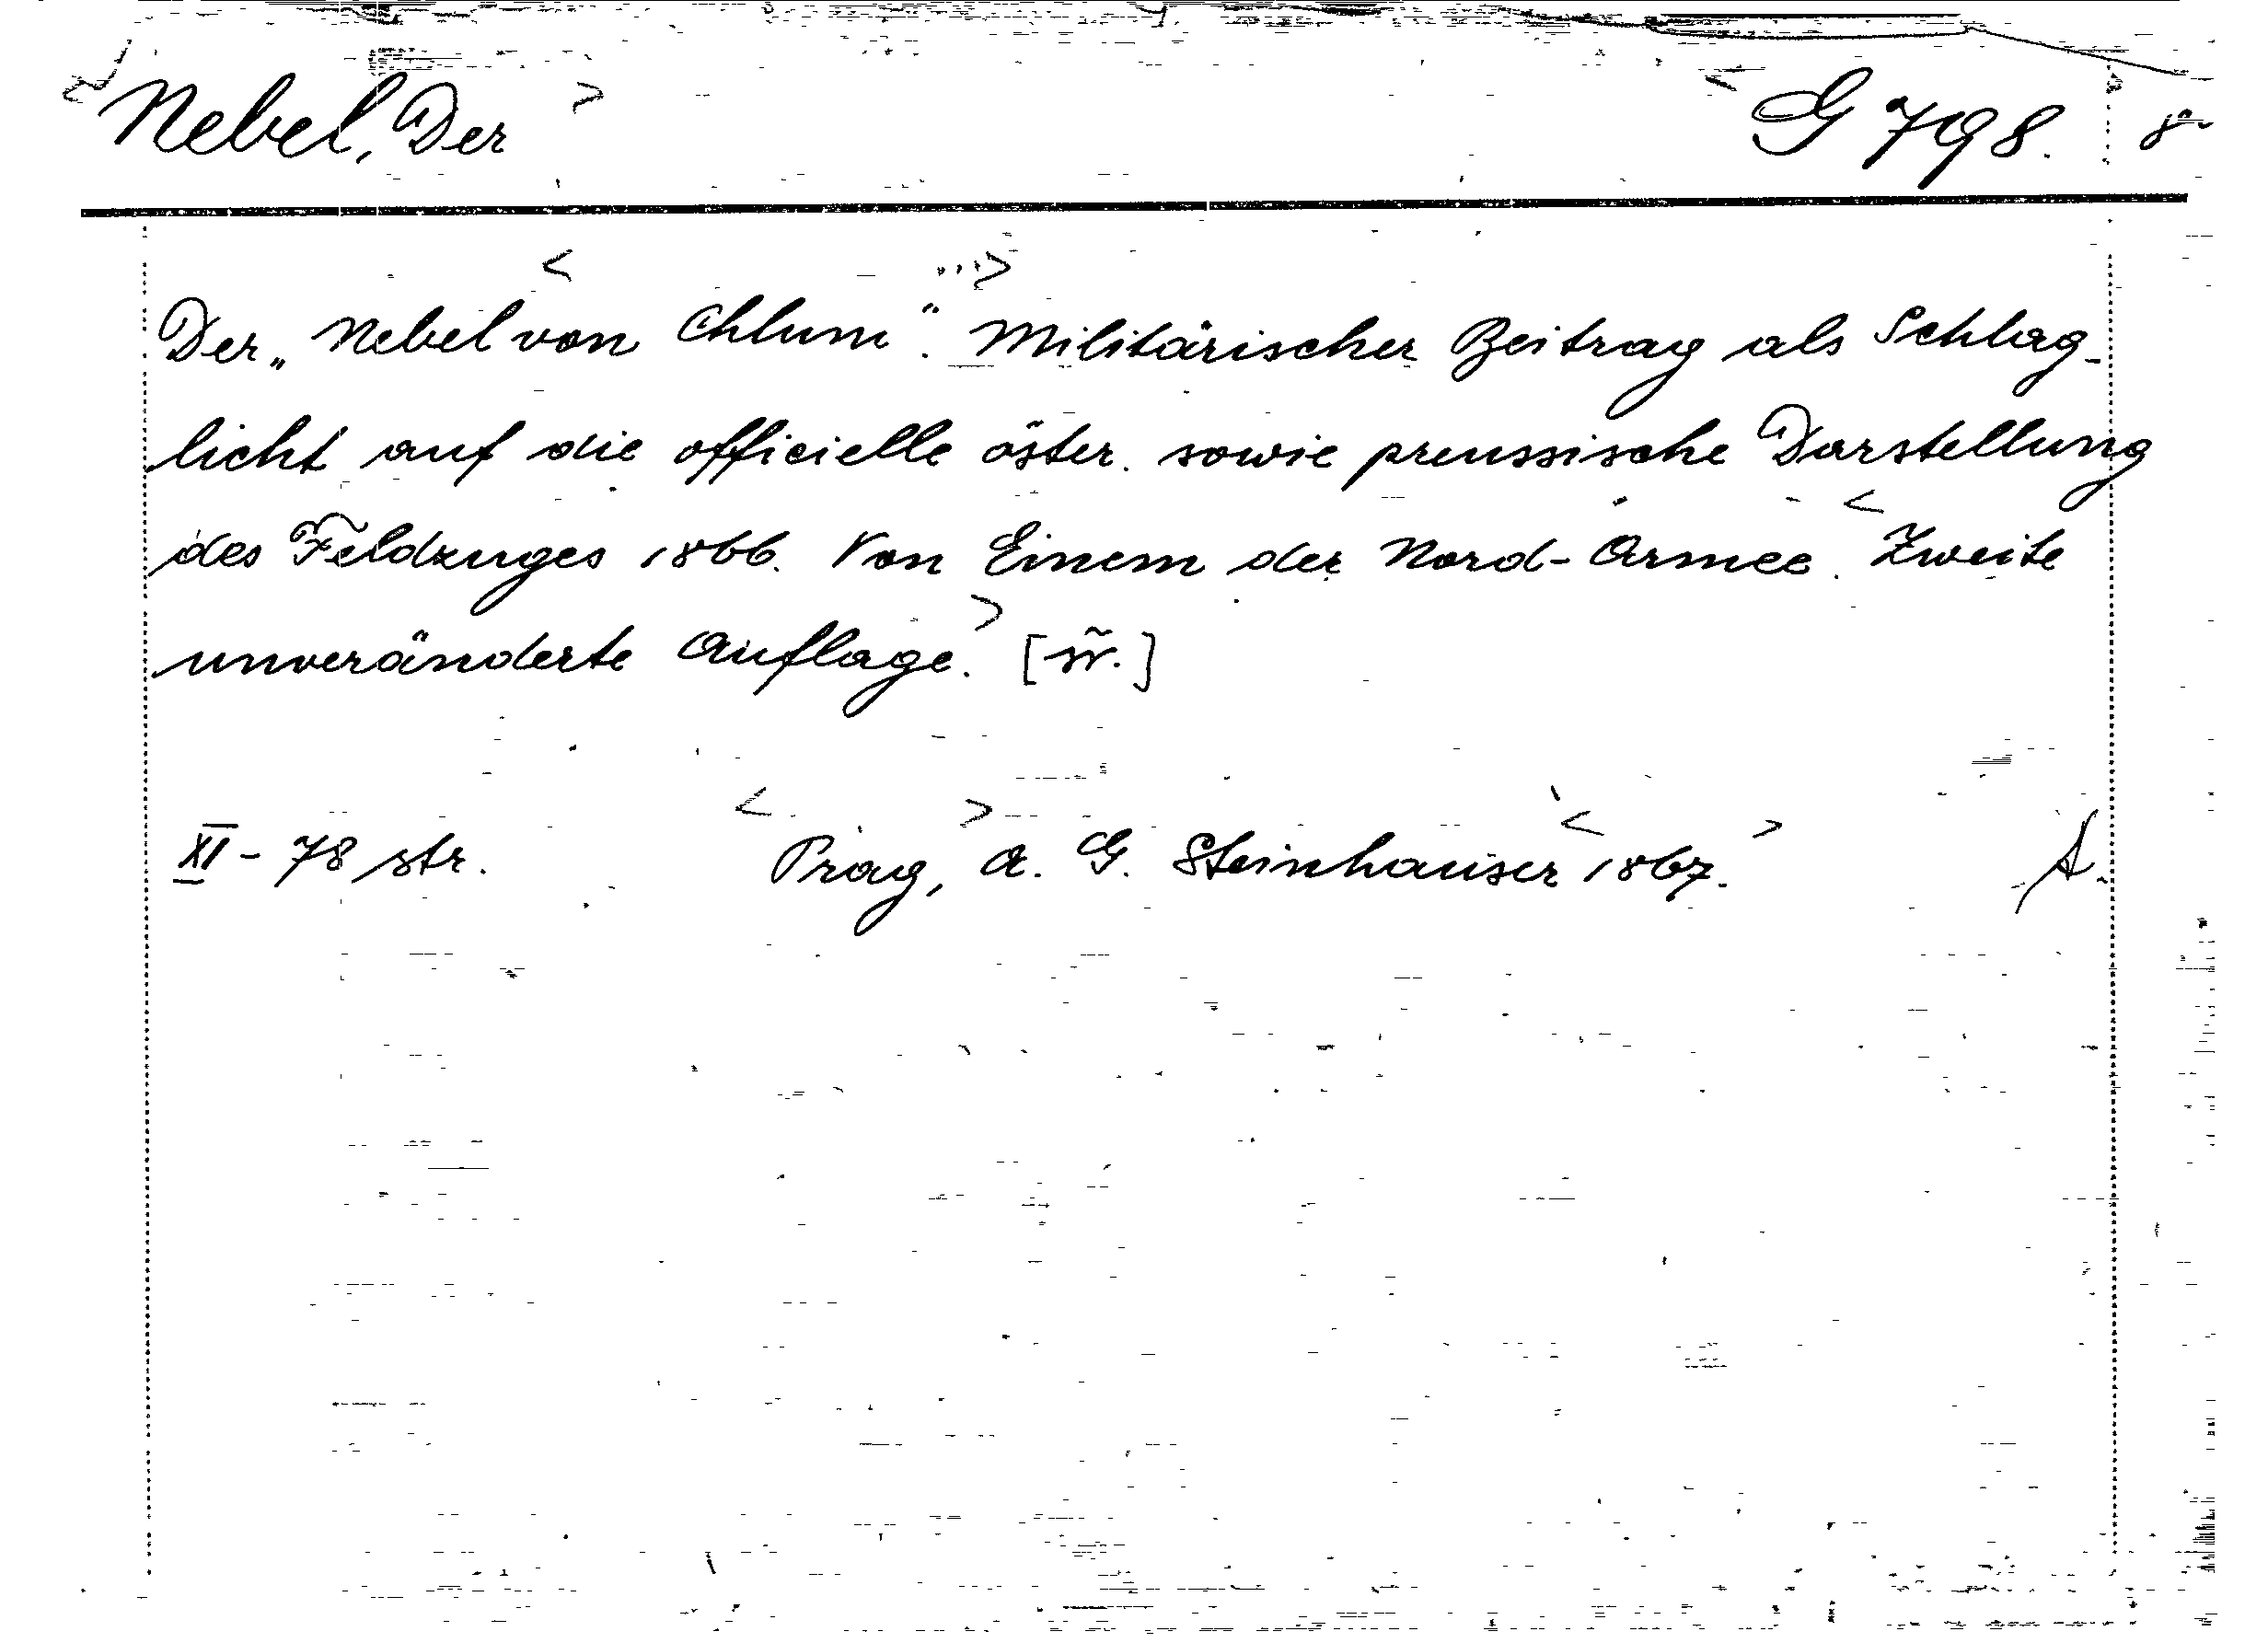 Nebel, Der G 798. 8°
Der „Nebel von Chlum“. Militärischer Beitrag als Schlag-
licht auf die officielle öster. sowie preussische Darstellung
des Feldzuges 1866. Von Einem der Nord-Armee. Zweite
unveränderte Auflage. [ ]
XI - 78 str. Prag, A. G. Steinhauser 1867. A.